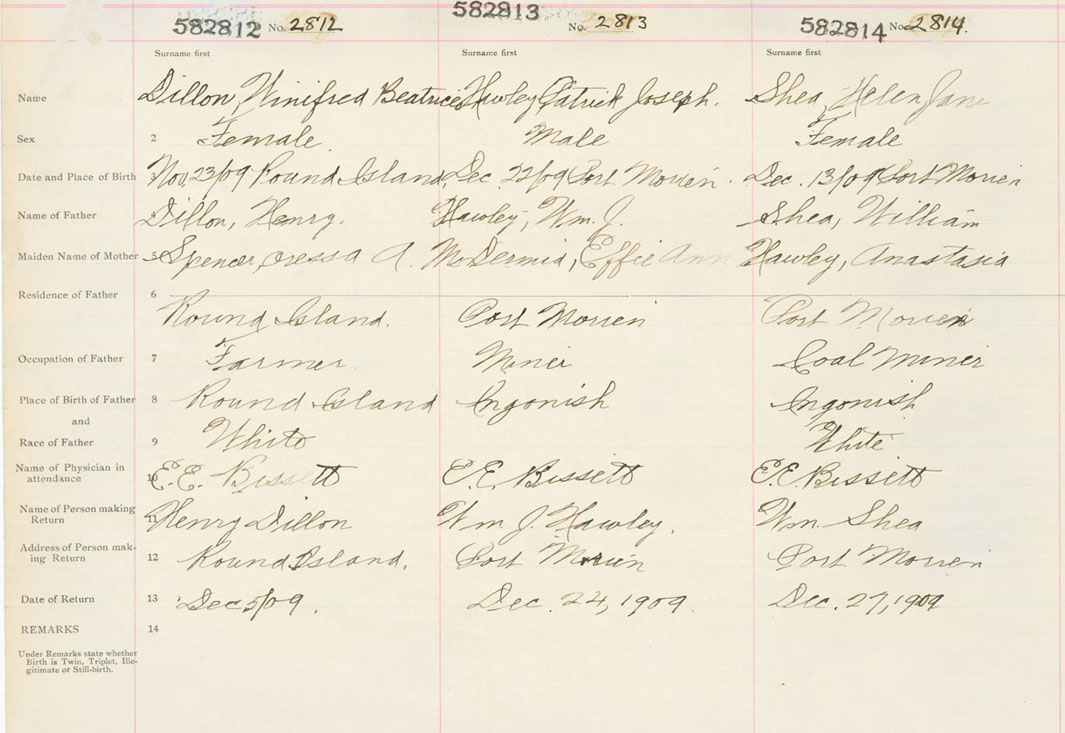 582812 No. 2812 582813 No. 2813 582814 No. 2814.
Surname first Surname first Surname first
Name Dillon, Winifred Beatrice Hawley, Patrick Joseph. Shea, Helen Jane
Sex 2 Female. Male Female
Date and Place of Birth 3 Nov. 23/09 Round Island, Dec. 22/09 Port Morien. Dec. 13/09 Port Morien
Name of Father 4 Dillon, Henry. Hawley, Wm. J. Shea, William
Maiden Name of Mother 5 Spencer, A. McDermid, Effie Ann Hawley, Anastasia
Residence of Father 6
Round Island. Port Morien Port Morien
Occupation of Father 7 Farmer. Miner Coal Miner
Place of Birth of Father 8 Round Island Ingonish Ingonish
and
Race of Father 9 White White
Name of Physician in
attendance 10 E.E. Bissett E.E. Bissett E.E. Bissett
Name of Person making
Return 11 Henry Dillon Wm J. Hawley. Wm. Shea
Address of Person mak-
ing Return 12 Round Island. Port Morien Port Morien
Date of Return 13 Dec 5/09. Dec. 24, 1909. Dec. 27, 1909
REMARKS 14
Under Remarks state whether
Birth is Twin, Triplet, Ille-
gitimate or Still-birth.